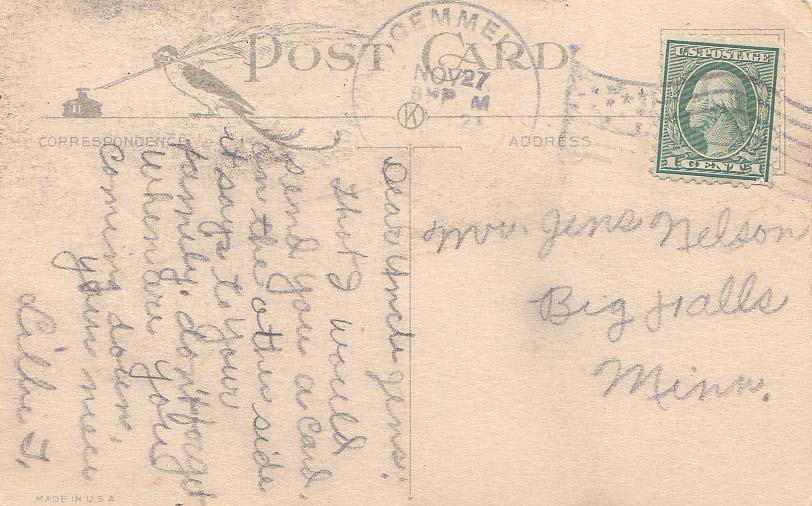 POST CARD
GEMMEL
NOV 27
M
U.S. POSTAGE
1 CENT 1
K
CORRESPONDENCE
ADDRESS
Dear Uncle Jens:
Thot I would
send you a card.
on the other side
it says to your
family. don't forget
When are you
coming down.
your niece
Lillie T.
Mr. Jens Nelson
Big Falls
Minn.
MADE IN U.S.A